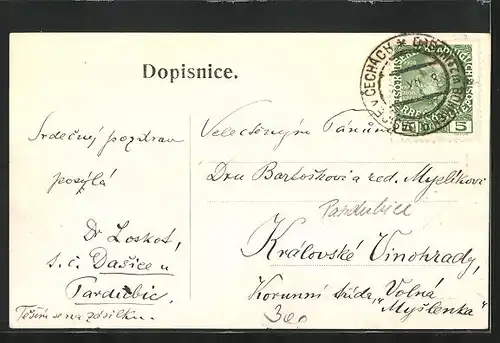 Dopisnice.
Srdečný pozdrav
posýlá
Dr Loskot,
s. č. Dašice u
Pardubic.
Těším se na zásilku.
Velectěným Pánům
Dru Bartoškovi a red. Myslíkovi
Pardubice
Královské Vinohrady,
Korunní třída, "Volná
Myšlenka"
V ČECHÁCH
5